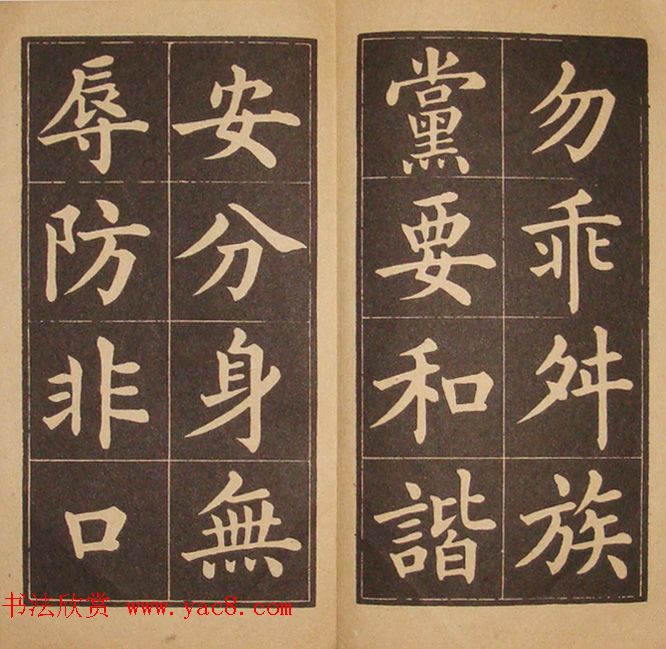 勿乖舛族
黨要和諧
安分身無
辱防非口
书法欣赏 www.yac8.com